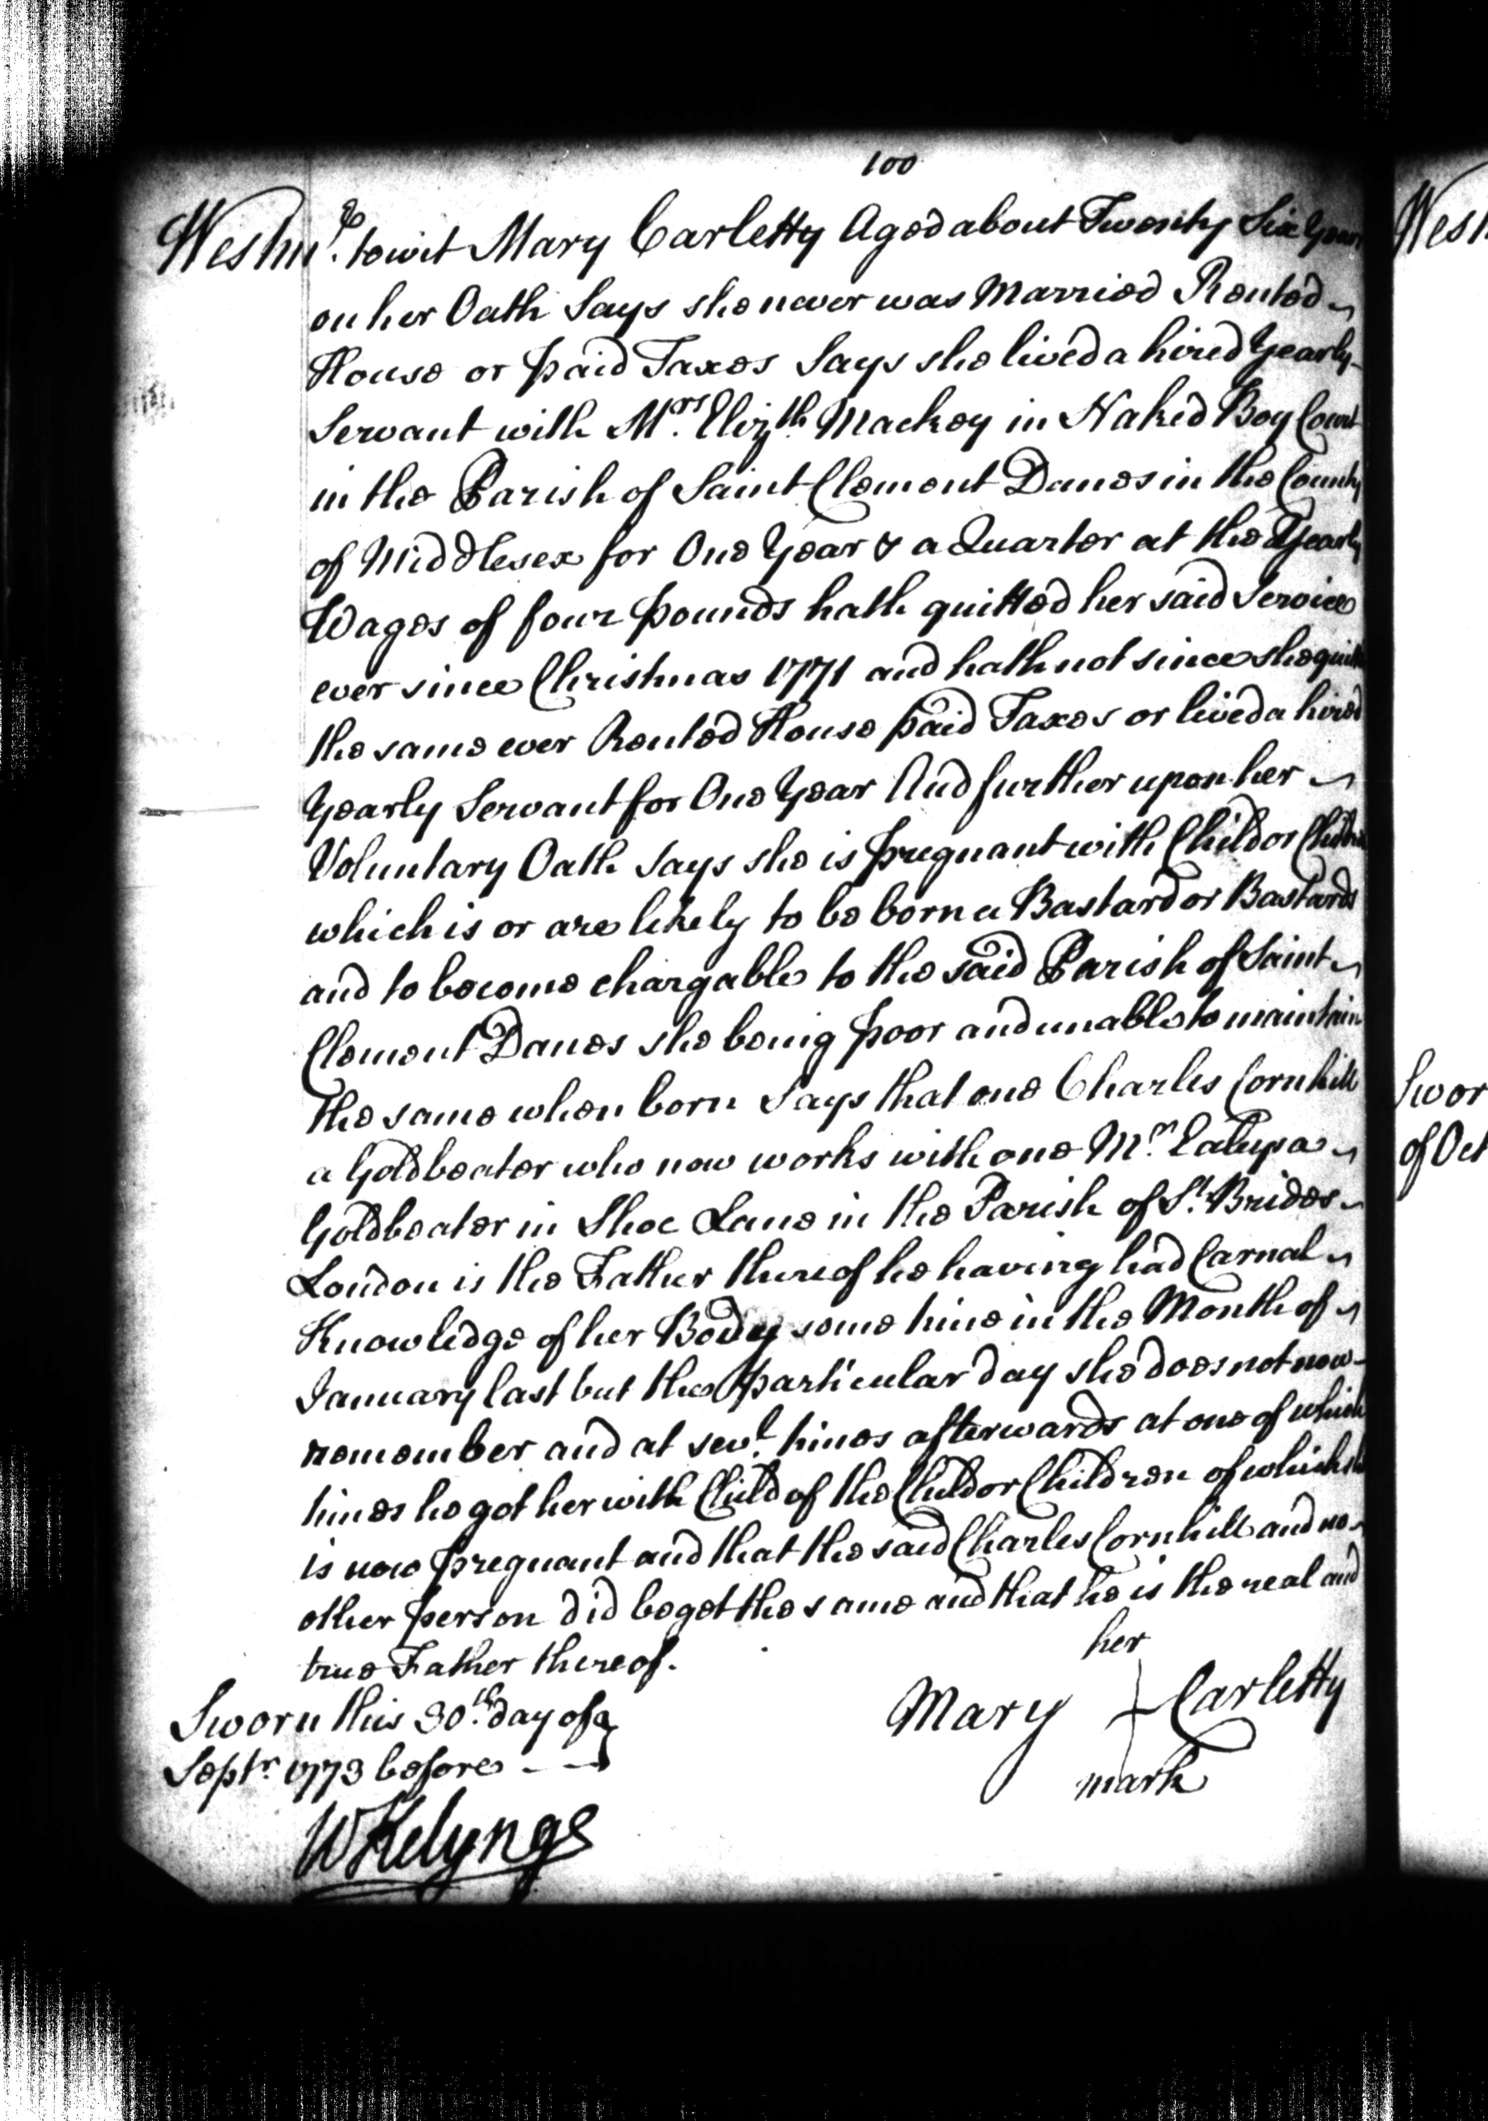 100
Westmr. to wit Mary Carletty Aged about Twenty Six Years
on her Oath Says she never was Married Rented
House or paid Taxes Says she lived a hired Yearly
Servant with Mrs. Elizth. Mackey in Naked Boy Court
in the Parish of Saint Clement Danes in the County
of Middlesex for One Year & a Quarter at the Yearly
Wages of four pounds hath quitted her said Service
ever since Christmas 1771 and hath not since she quitted
the same ever Rented House paid Taxes or lived a hired
Yearly Servant for One Year And further upon her
Voluntary Oath says she is pregnant with Child or Children
which is or are likely to be born a Bastard or Bastards
and to become chargable to the said Parish of Saint
Clement Danes she being poor and unable to maintain
the same when born Says that one Charles Cornhill
a Goldbeater who now works with one Mr. a
Goldbeater in Shoe Lane in the Parish of St. Brides
London is the Father thereof he having had Carnal
Knowledge of her Body some time in the Month of
January last but the particular day she does not now
remember and at sevl. times afterwards at one of which
times he got her with Child of the Child or Children of which she
is now pregnant and that the said Charles Cornhill and no
other person did beget the same and that he is the real and
true Father thereof.
her
Mary + Carletty
mark
Sworn this 30th. day of
Septr. 1773 before
WKelynge
Westm
Swor
of Oct